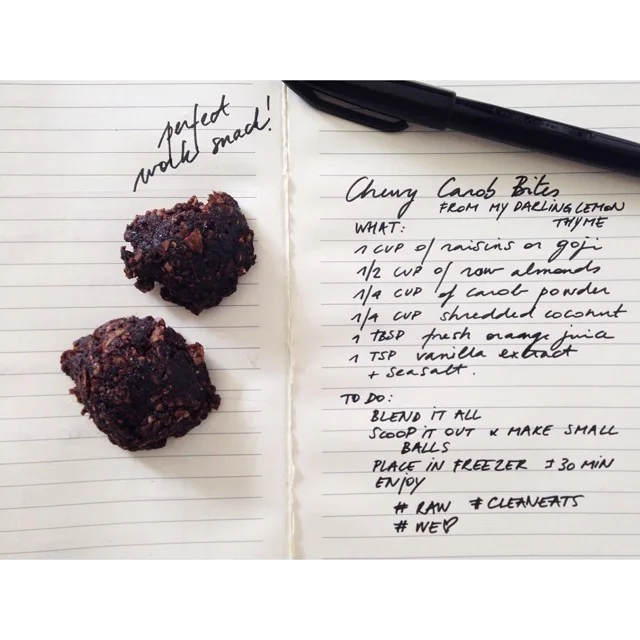 perfect
work snack!
Chewy Carob Bites
FROM MY DARLING LEMON
THYME
WHAT:
1 CUP of raisins or goji
1/2 CUP of raw almonds
1/4 CUP of carob powder
1/4 CUP shredded coconut
1 TBSP fresh orange juice
1 TSP vanilla extract
+ seasalt.
TO DO:
BLEND IT ALL
SCOOP IT OUT & MAKE SMALL
BALLS
PLACE IN FREEZER ± 30 MIN
ENJOY
# RAW # CLEANEATS
# WE♡